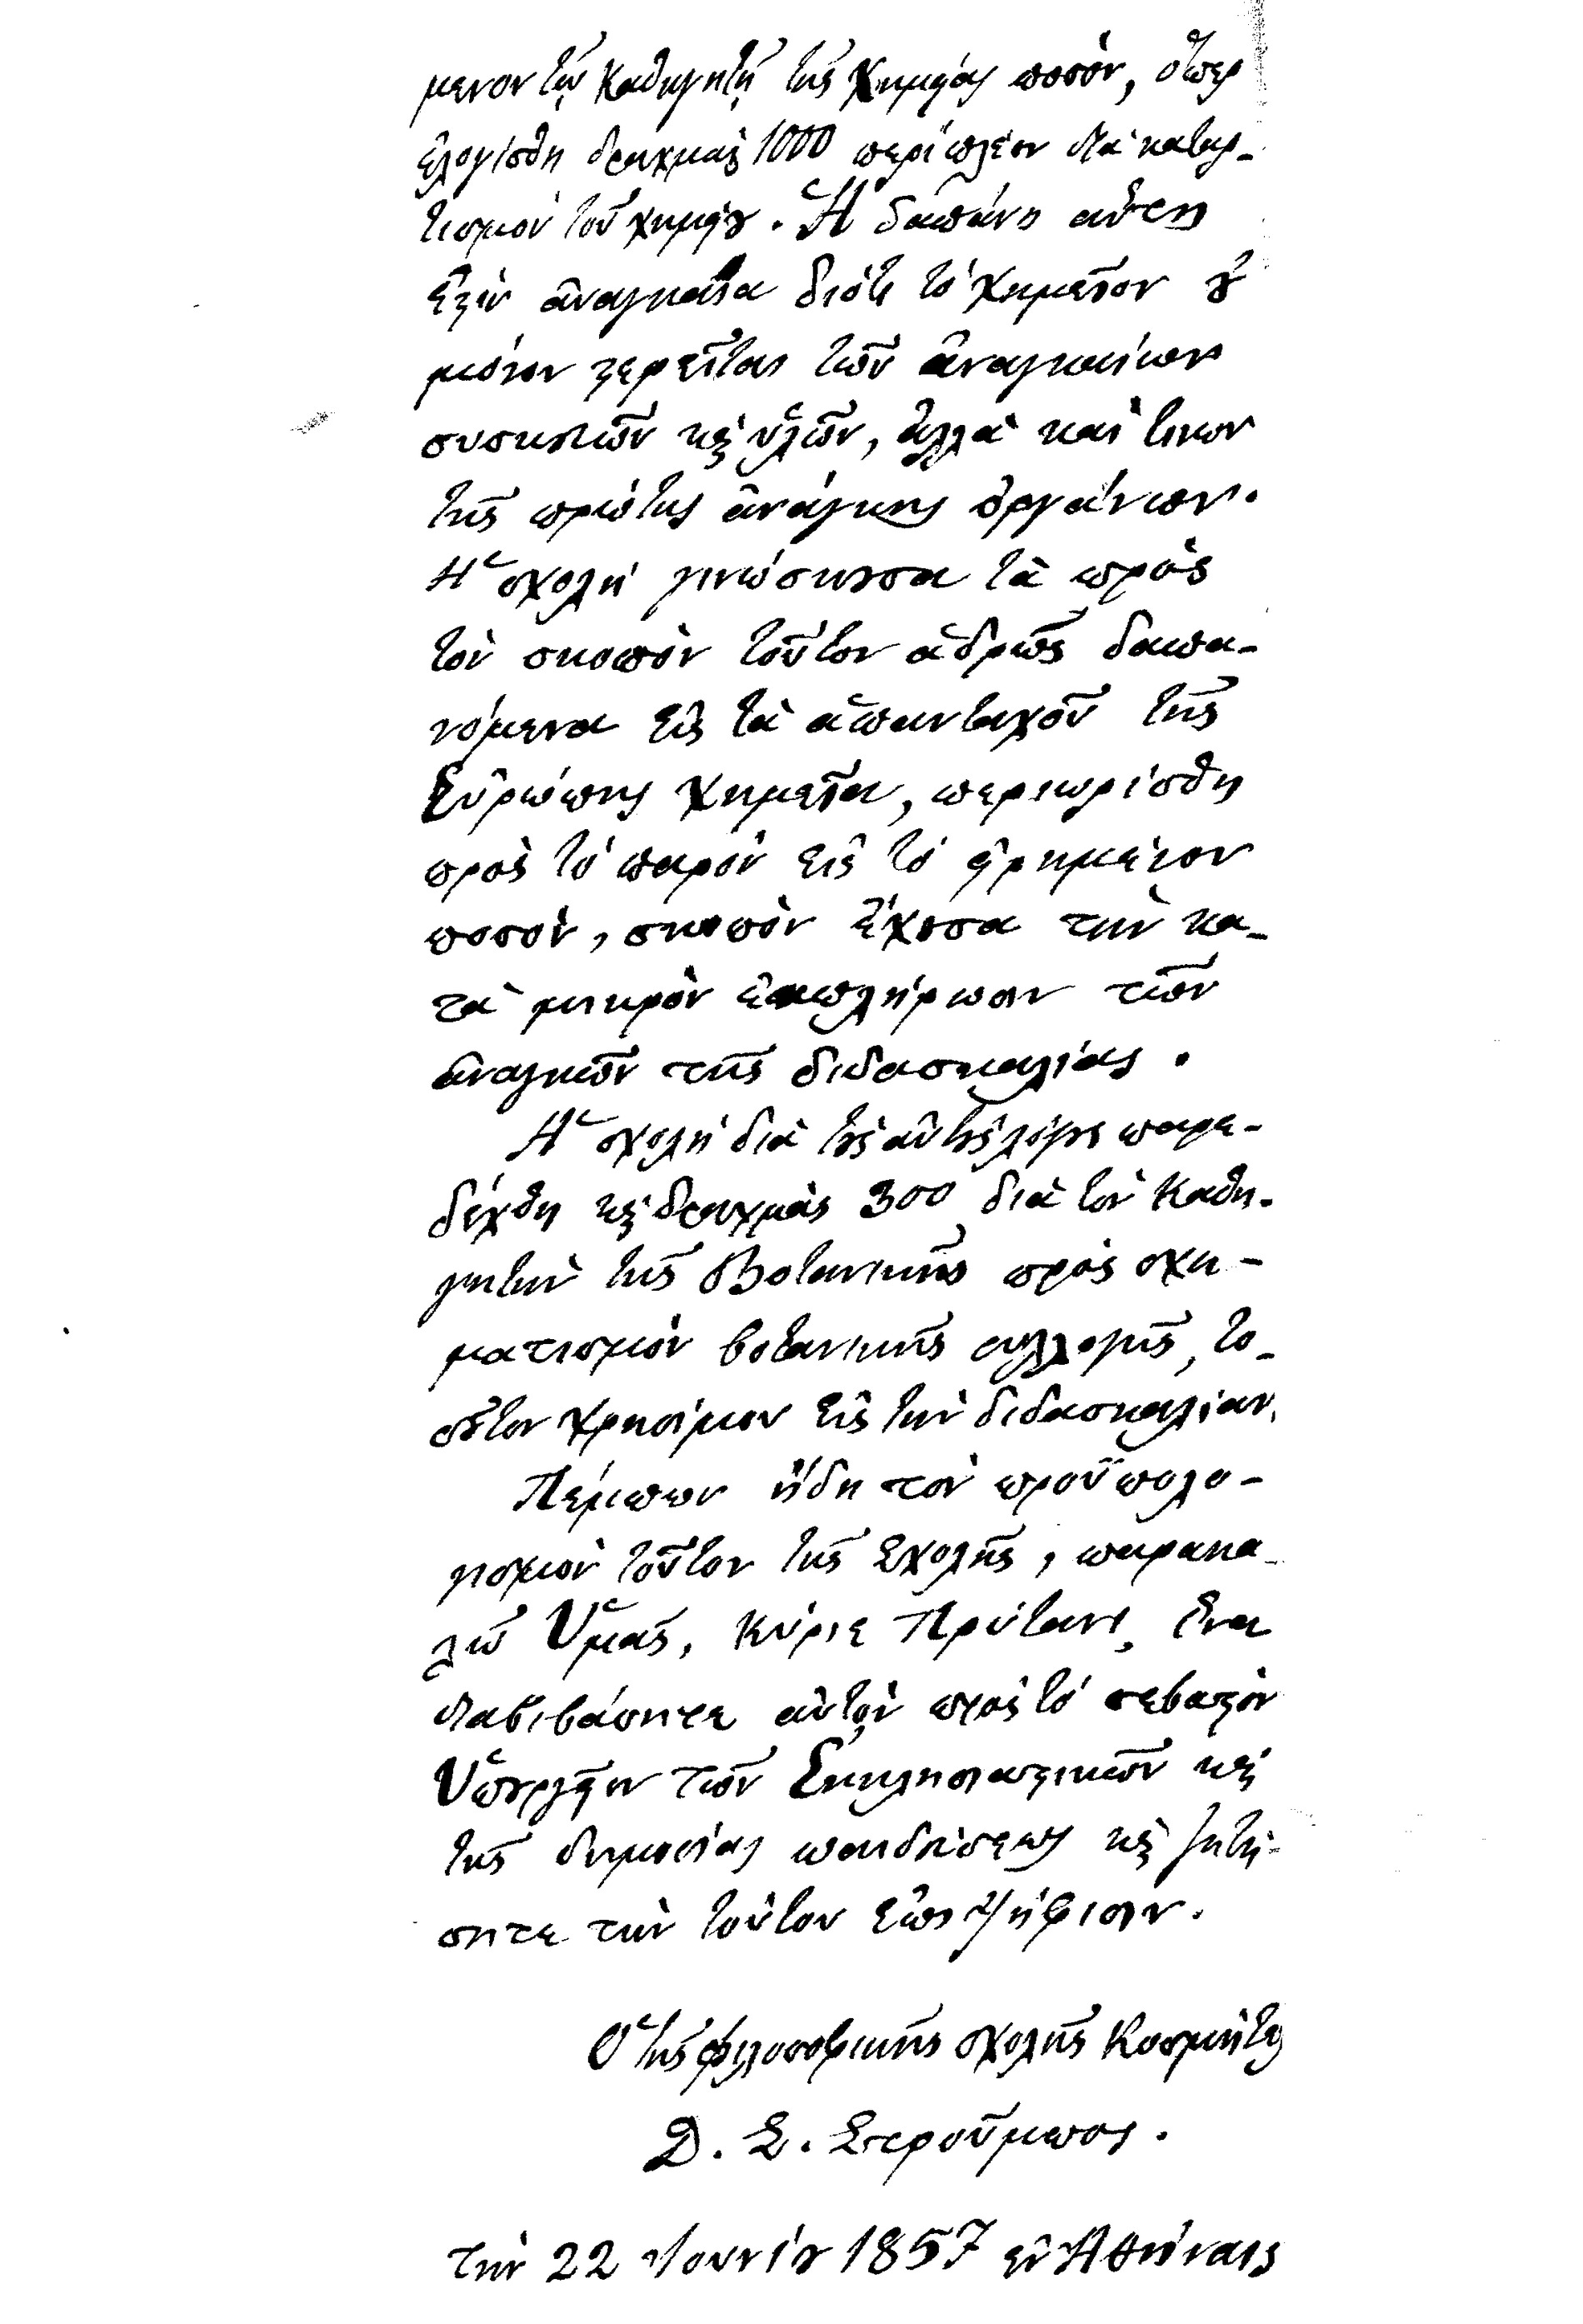 μενον τῷ Καθηγητῇ τῆς Χημείας ποσόν, ὅπερ
ἐλογίσθη δραχμὰς 1000 περιπλέον διὰ καταρ-
τισμὸν τοῦ χημείου. Ἡ δαπάνη αὕτη
ἐστὶν ἀναγκαῖα διότι τὸ Χημεῖον οὐ
μόνον στερεῖται τῶν ἀναγκαίων
συσκευῶν καὶ ὑλῶν, ἀλλὰ καί τινων
τῆς πρώτης ἀνάγκης ὀργάνων.
Ἡ σχολὴ γινώσκουσα τὰ πρὸς
τὸν σκοπὸν τοῦτον ἁδρῶς δαπα-
νόμενα εἰς τὰ ἁπανταχοῦ τῆς
Εὐρώπης Χημεῖα, περιωρίσθη
πρὸς τὸ παρὸν εἰς τὸ εἰρημένον
ποσὸν, σκοπὸν ἔχουσα τὴν κα-
τὰ μικρὸν ἐκπλήρωσιν τῶν
ἀναγκῶν τῆς διδασκαλίας.
Ἡ σχολὴ διὰ τοὺς αὐτοὺς λόγους παρε-
δέχθη καὶ δραχμὰς 300 διὰ τὸν Καθη-
γητὴν τῆς Βοτανικῆς πρὸς σχη-
ματισμὸν βοτανικῆς συλλογῆς, το-
σοῦτον χρησίμου εἰς τὴν διδασκαλίαν.
Πέμπων ἤδη τὸν προϋπολο-
γισμὸν τοῦτον τῆς Σχολῆς, παρακα-
λῶ Ὑμᾶς, Κύριε Πρύτανι, ἵνα
διαβιβάσητε αὐτὸν πρὸς τὸ σεβαστὸν
Ὑπουργεῖον τῶν Ἐκκλησιαστικῶν καὶ
τῆς δημοσίας παιδεύσεως καὶ ζητή-
σητε τὴν τούτου ἐπιψήφισιν.
Ὁ τῆς φιλοσοφικῆς σχολῆς Κοσμήτωρ
Δ. Σ. Στροῦμπος.
τὴν 22 Ἰουνίου 1857 ἐν Ἀθήναις